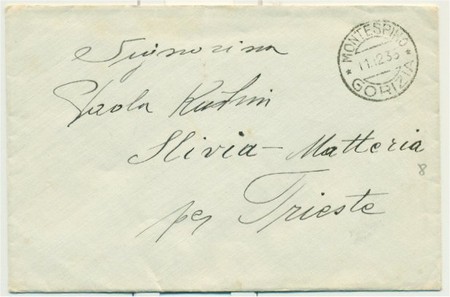 MONTESPINO
11.12.35
* GORIZIA *
Signorina
Paola
Slivia - Matteria
per Trieste
8